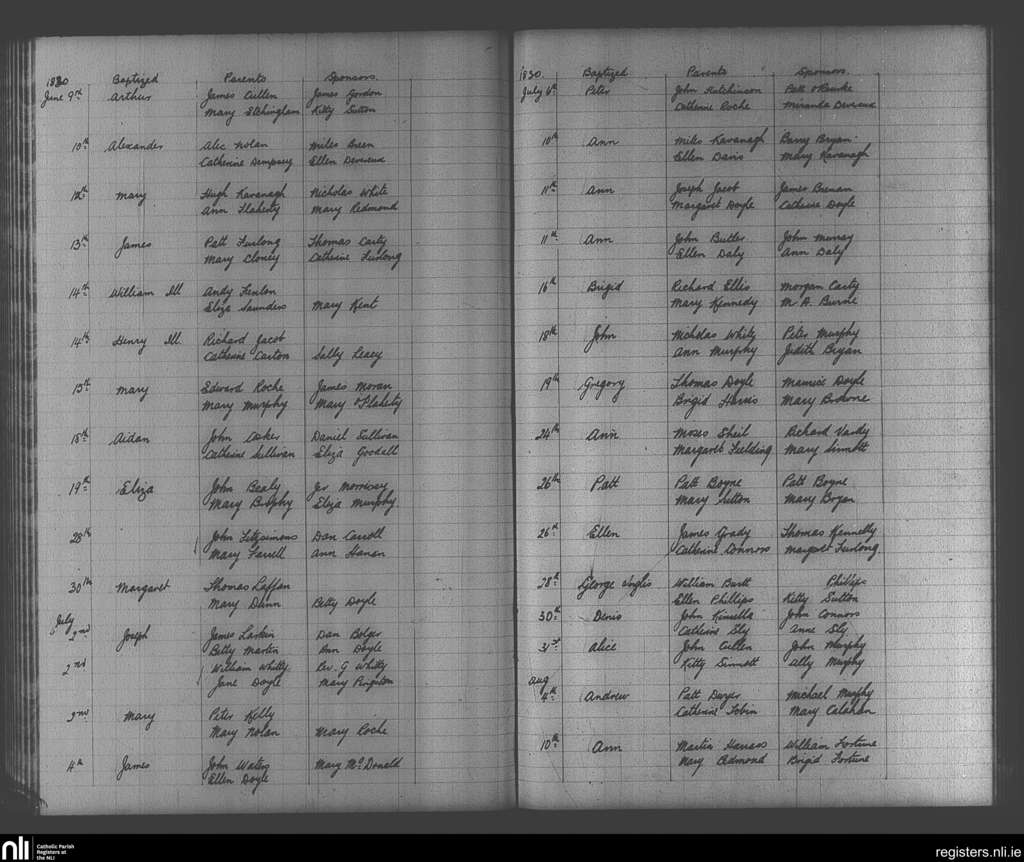 1830 Baptized Parents Sponsors.
June 9th Arthur James Cullen James Gordon
Mary Etchingham Kitty Sutton
10th Alexander Alec Nolan Miles Breen
Catherine Dempsey Ellen Devereux
12th Mary Hugh Kavanagh Nicholas White
Ann Flaherty Mary Redmond
13th James Patt Furlong Thomas Carty
Mary Cloney Catherine Furlong
14th William Ill Andy Fenlon
Eliza Saunders Mary Kent
14th Henry Ill. Richard Jacob
Catherine Carton Sally Leacy
15th Mary Edward Roche James Moran
Mary Murphy Mary O'Flaherty
18th Aidan John Daniel Sullivan
Catherine Sullivan Eliza Goodall
19th Eliza John Bealy Morrissey
Mary Eliza Murphy
28th John Fitzsimons Dan Carroll
Mary Farrell Ann Hanan
30th Margaret Thomas Laffan
Mary Dunn Betty Doyle
July
2nd Joseph James Larkin Dan Bolger
Betty Martin Ann Doyle
2nd William Whitty Rev. G Whitty
Jane Doyle Mary
2nd Mary Peter Kelly
Mary Nolan Mary Roche
4th James John Waters Mary McDonald
Ellen Doyle
1830. Baptized Parents Sponsors.
July 6th Peter John Hutchinson Patt O'Rourke
Catherine Roche Miranda Devereux
10th Ann Miles Kavanagh Barry Bryan
Ellen Davis Mary Kavanagh
11th Ann Joseph Jacob James Brenan
Margaret Doyle Catherine Doyle
11th Ann John Butler John Murray
Ellen Daly Ann Daly
16th Brigid Richard Ellis Morgan Carty
Mary Kennedy M. A. Burne
18th John Nicholas White Peter Murphy
Ann Murphy Judith Bryan
19th Gregory Thomas Doyle Maurice Doyle
Brigid Harris Mary Browne
24th Ann Moses Sheil Richard Vardy
Margaret Fielding Mary Sinnott
26th Patt Patt Boyne Patt Boyne
Mary Sutton Mary Bryan
26th Ellen James Grady Thomas Kennelly
Catherine Connors Margaret Furlong.
28th George Inglis William Burtt Phillips
Ellen Phillips Kitty Sutton
30th Denis John Kinsella John Connors
Catherine Sly Anne Sly
31st Alice John Cullen John Murphy
Kitty Sinnott Ally Murphy
Aug
4th Andrew Patt Dwyer Michael Murphy
Catherine Tobin Mary Calahan
10th Ann Martin William Fortune
Mary Redmond Brigid Fortune
nli Catholic Parish
Registers at
the NLI
registers.nli.ie